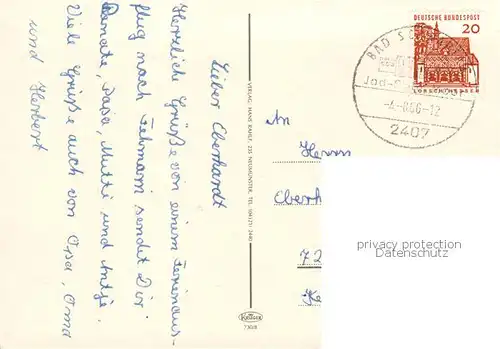 Lieber Eberhardt
Herzlich Grüße von einem Ferienaus-
flug nach Fehmarn sendet Dir
Renate, Papa, Mutti und Antje.
Viele Grüße auch von Opa, Oma
und Herbert
VERLAG: HANS RAHE, 235 NEUMÜNSTER, TEL. (04321) 2440
KRÜGER
730/8
DEUTSCHE BUNDESPOST
20
LORSCH/HESSEN
BAD
Jod-
-4.-8.66-12
2407
An
Herrn
Eberh
72
privacy protection
Datenschutz